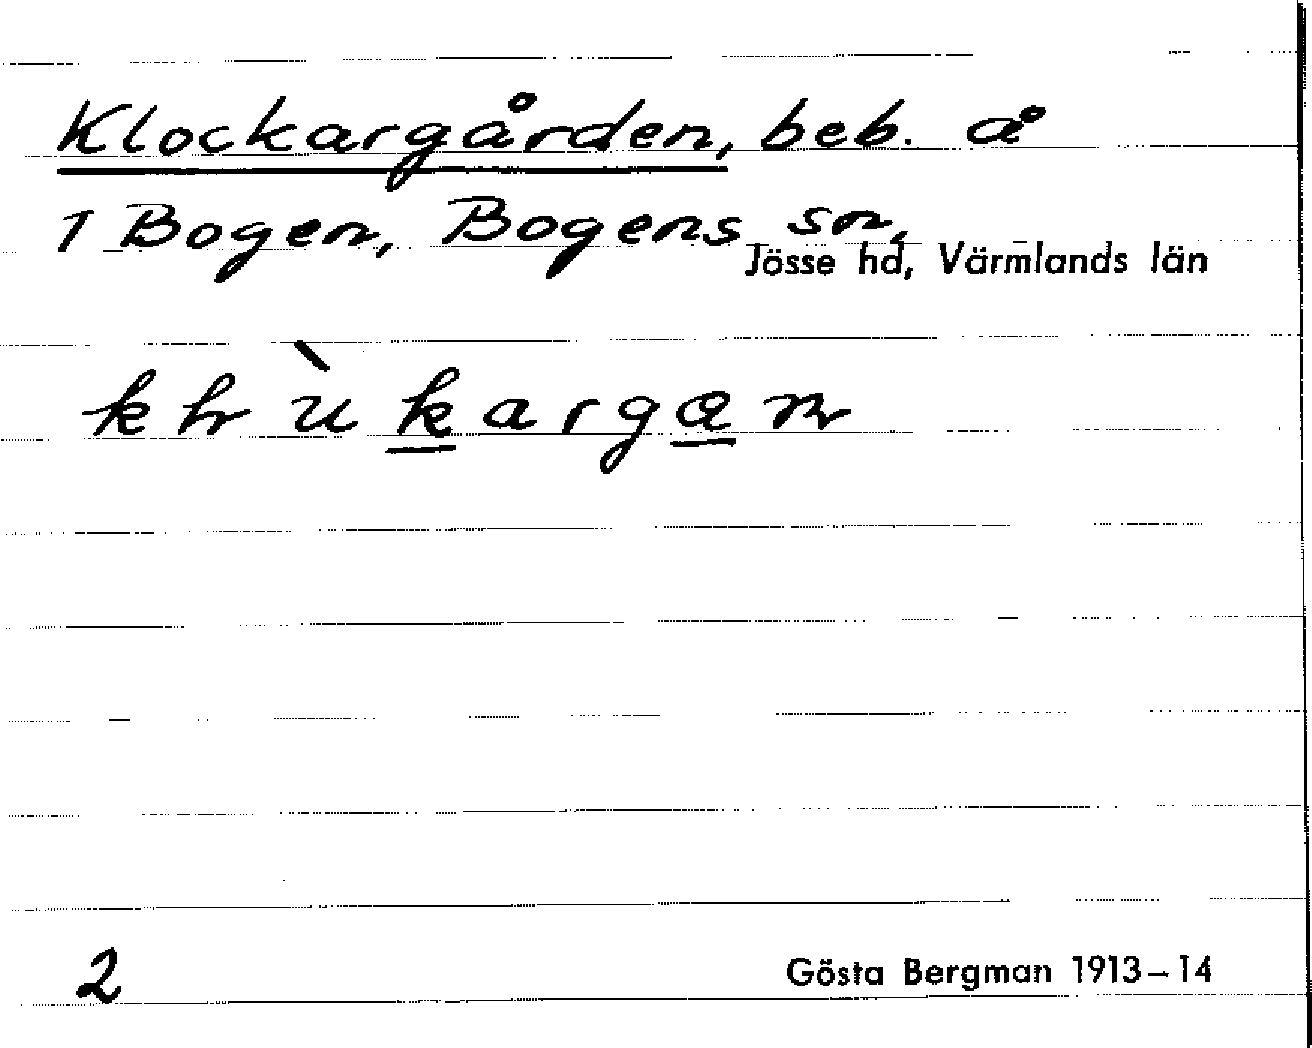 Klockargården, beb. å
1 Bogen, Bogens sn,
Jösse hd, Värmlands län
2
Gösta Bergman 1913–14